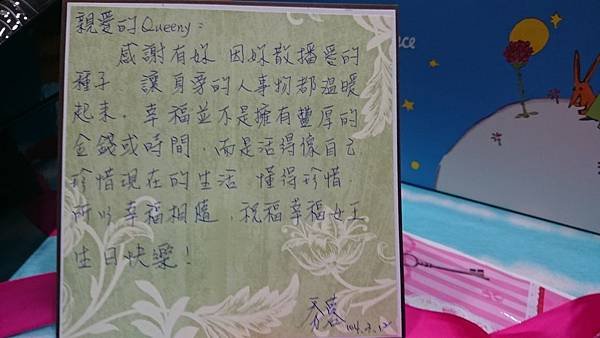 親愛的Queeny：
感謝有妳 因妳散播愛的
種子 讓身旁的人事物都溫暖
起來，幸福並不是擁有豐厚的
金錢或時間，而是活得像自己
珍惜現在的生活 懂得珍惜，
所以幸福相隨，祝福幸福女王
生日快樂！
104.2.12
nce